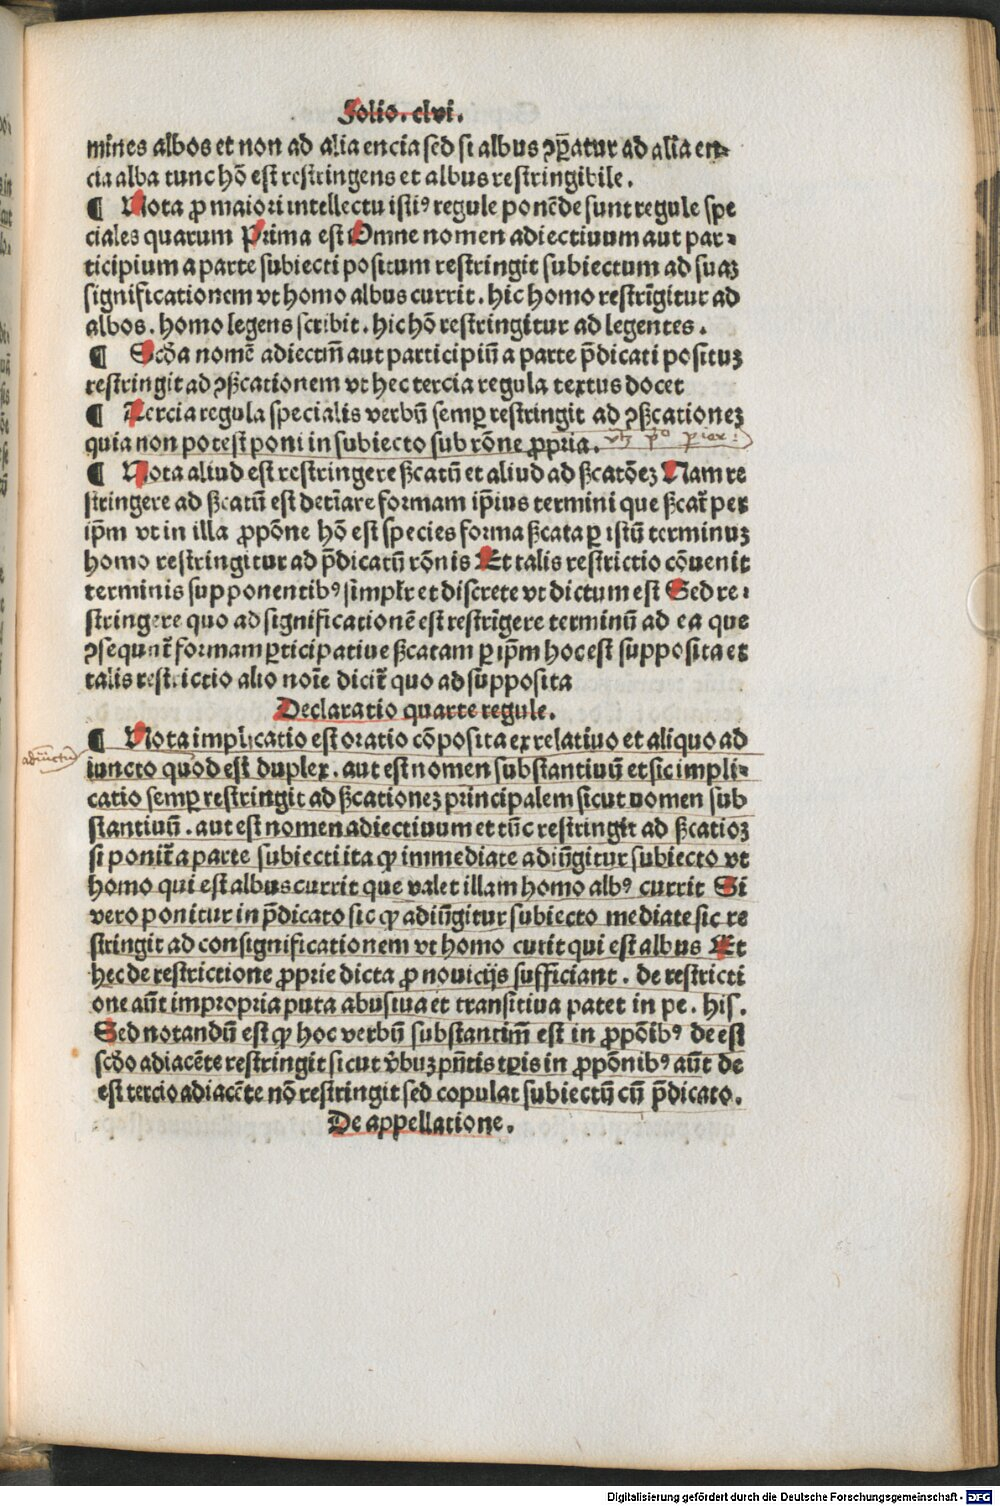 Folio. clvi.
mīnes albos et non ad alia encia sed si albus ꝯꝑatur ad alia en-
cia alba tunc hō est restringens et albus restringibile.
¶ Nota ꝓ maiori intellectu istiꝰ regule ponēde sunt regule spe
ciales quarum Prima est Omne nomen adiectiuum aut par-
ticipium a parte subiecti positum restringit subiectum ad suaꝫ
significationem vt homo albus currit. hic homo restrīgitur ad
albos. homo legens scribit. hic hō restringitur ad legentes.
¶ Scḋa nomē adiectiū aut participiū a parte p̄dicati posituꝫ
restringit ad ꝯßcationem vt hec tercia regula textus docet
¶ Tercia regula specialis verbū semꝑ restringit ad ꝯßcationeꝫ
quia non potest poni in subiecto sub rōne ꝓpria.
¶ Nota aliud est restringere ßcatū et aliud ad ßcatōeꝫ Nam re
stringere ad ßcatū est detīare formam ip̄ius termini que ßcat᷑ per
ip̄m vt in illa ꝓpōne hō est species forma ßcata ꝑ istū terminuꝫ
homo restringitur ad p̄dicatū rōnis Et talis restrictio cōuenit
terminis supponentibꝰ simpl̄r et discrete vt dictum est Sed re-
stringere quo ad significationē est restrīgere terminū ad ea que
ꝯsequunt᷑ formam ꝑticipatiue ßcatam ꝑ ip̄m hoc est supposita et
talis restrictio alio noīe dicit᷑ quo ad supposita
Declaratio quarte regule.
¶ Nota implicatio est oratio cōposita ex relatiuo et aliquo ad
iuncto quod est duplex. aut est nomen substantiuū et sic impli-
catio semꝑ restringit ad ßcationeꝫ principalem sicut nomen sub
stantiuū. aut est nomen adiectiuum et tūc restringit ad ßcatioꝫ
si ponit᷑ a parte subiecti ita ꝙ immediate adiūgitur subiecto vt
homo qui est albus currit que valet illam homo albꝰ currit Si
vero ponitur in p̄dicato sic ꝙ adiūgitur subiecto mediate sic re
stringit ad consignificationem vt homo curit qui est albus Et
hec de restrictione ꝓprie dicta ꝓ nouicijs sufficiant. de restricti
one aūt impropria puta abusiua et transitiua patet in pe. his.
Sed notandū est ꝙ hoc verbū substantiuū est in ꝓpōibꝰ de est
scḋo adiacēte restringit sicut v̄buꝫ pn̄tis tꝑis in ꝓpōnibꝰ aūt de
est tercio adiacēte nō restringit sed copulat subiectū cū p̄dicato.
De appellatione.
Digitalisierung gefördert durch die Deutsche Forschungsgemeinschaft - DFG